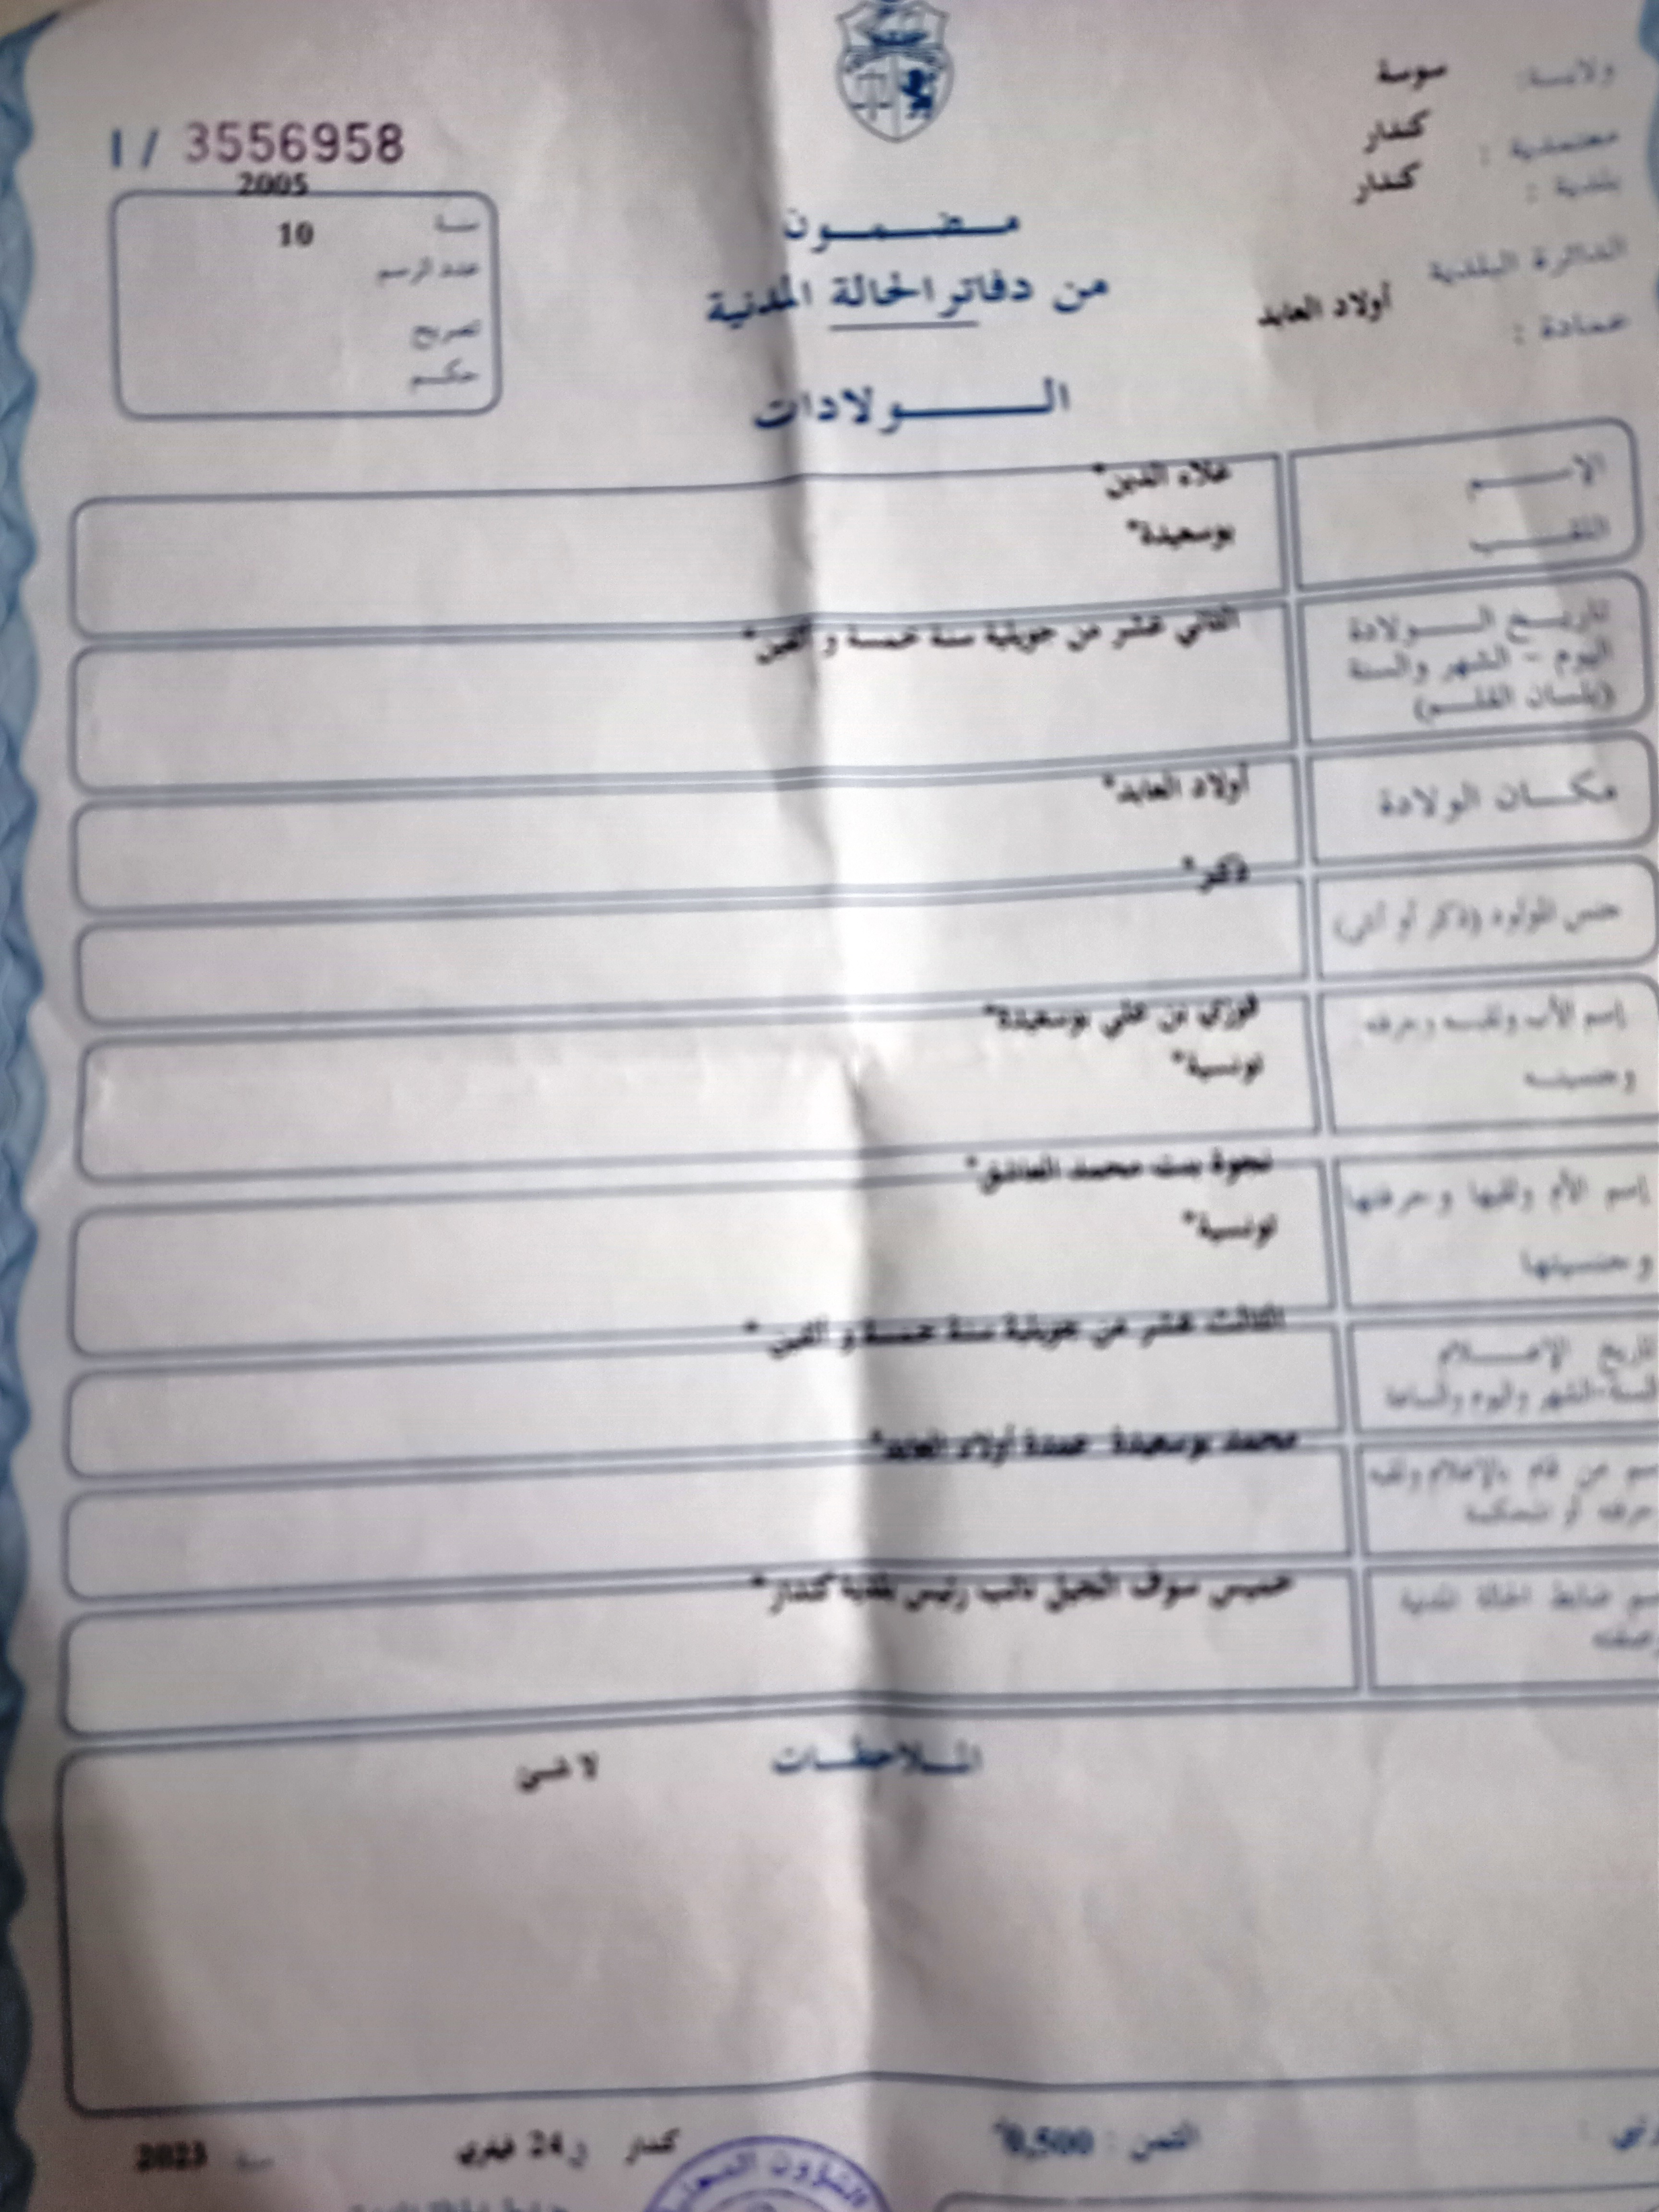 ولايـــة: سوسة
معتمدية : كندار
بلدية : كندار
الدائرة البلدية
عمادة : أولاد العابد
I / 3556958
2005
سنـــة
10
عدد الرسم
تصريح
حكـــم
مـضـمـــون
من دفاتر الحالة المدنية
الـــــولادات
الإســــــم علاء الدين*
اللقـــــب بوسعيدة*
تاريـــخ الـــــولادة الثاني عشر من جويلية سنة خمسة و ألفين*
اليوم - الشهر والسنة
(بلسان القلـــم)
مكـــان الولادة أولاد العابد*
جنس المولود (ذكر أو أنثى) ذكر*
إسم الأب ولقبـــه وحرفته فوزي بن علي بوسعيدة*
وجنسيتـــه تونسية*
إسم الأم ولقبها وحرفتها نجوة بنت محمد العاشق*
وجنسيتها تونسية*
تاريخ الإعـــلام الثالث عشر من جويلية سنة خمسة و ألفين *
السنة-الشهر واليوم والساعة
من قام بالإعلام ولقبه محمد بوسعيدة عمدة أولاد العابد*
حرفته أو المحكمة
ضابط الحالة المدنية خميس سوف الجيل نائب رئيس بلدية كندار*
الملاحظـــات لا شئ
الثمن : 0,500
كندار في 24 فيفري سنة 2023
الشؤون المحلية